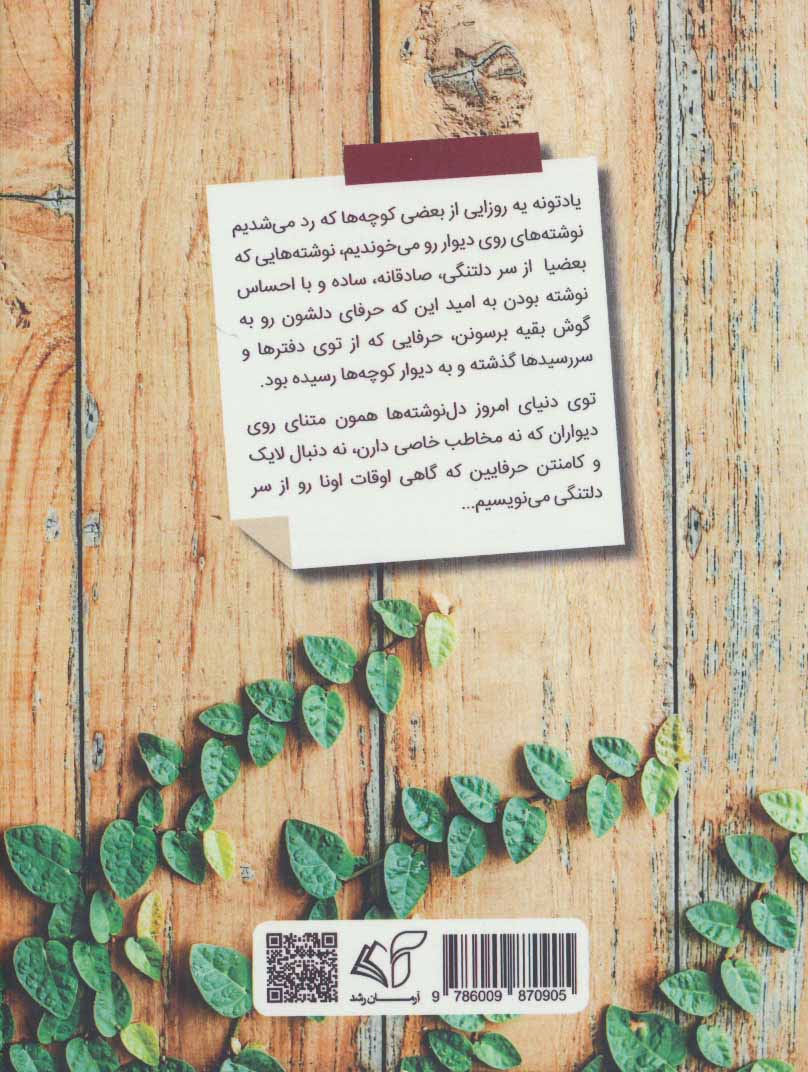 یادتونه یه روزایی از بعضی کوچه‌ها که رد می‌شدیم
نوشته‌های روی دیوار رو می‌خوندیم، نوشته‌هایی که
بعضیا از سر دلتنگی، صادقانه، ساده و با احساس
نوشته بودن به امید این که حرفای دلشون رو به
گوش بقیه برسونن، حرفایی که از توی دفترها و
سررسیدها گذشته و به دیوار کوچه‌ها رسیده بود.
توی دنیای امروز دل‌نوشته‌ها همون متنای روی
دیواران که نه مخاطب خاصی دارن، نه دنبال لایک
و کامنتن حرفایین که گاهی اوقات اونا رو از سر
دلتنگی می‌نویسیم...
آرمان رشد
9 786009 870905